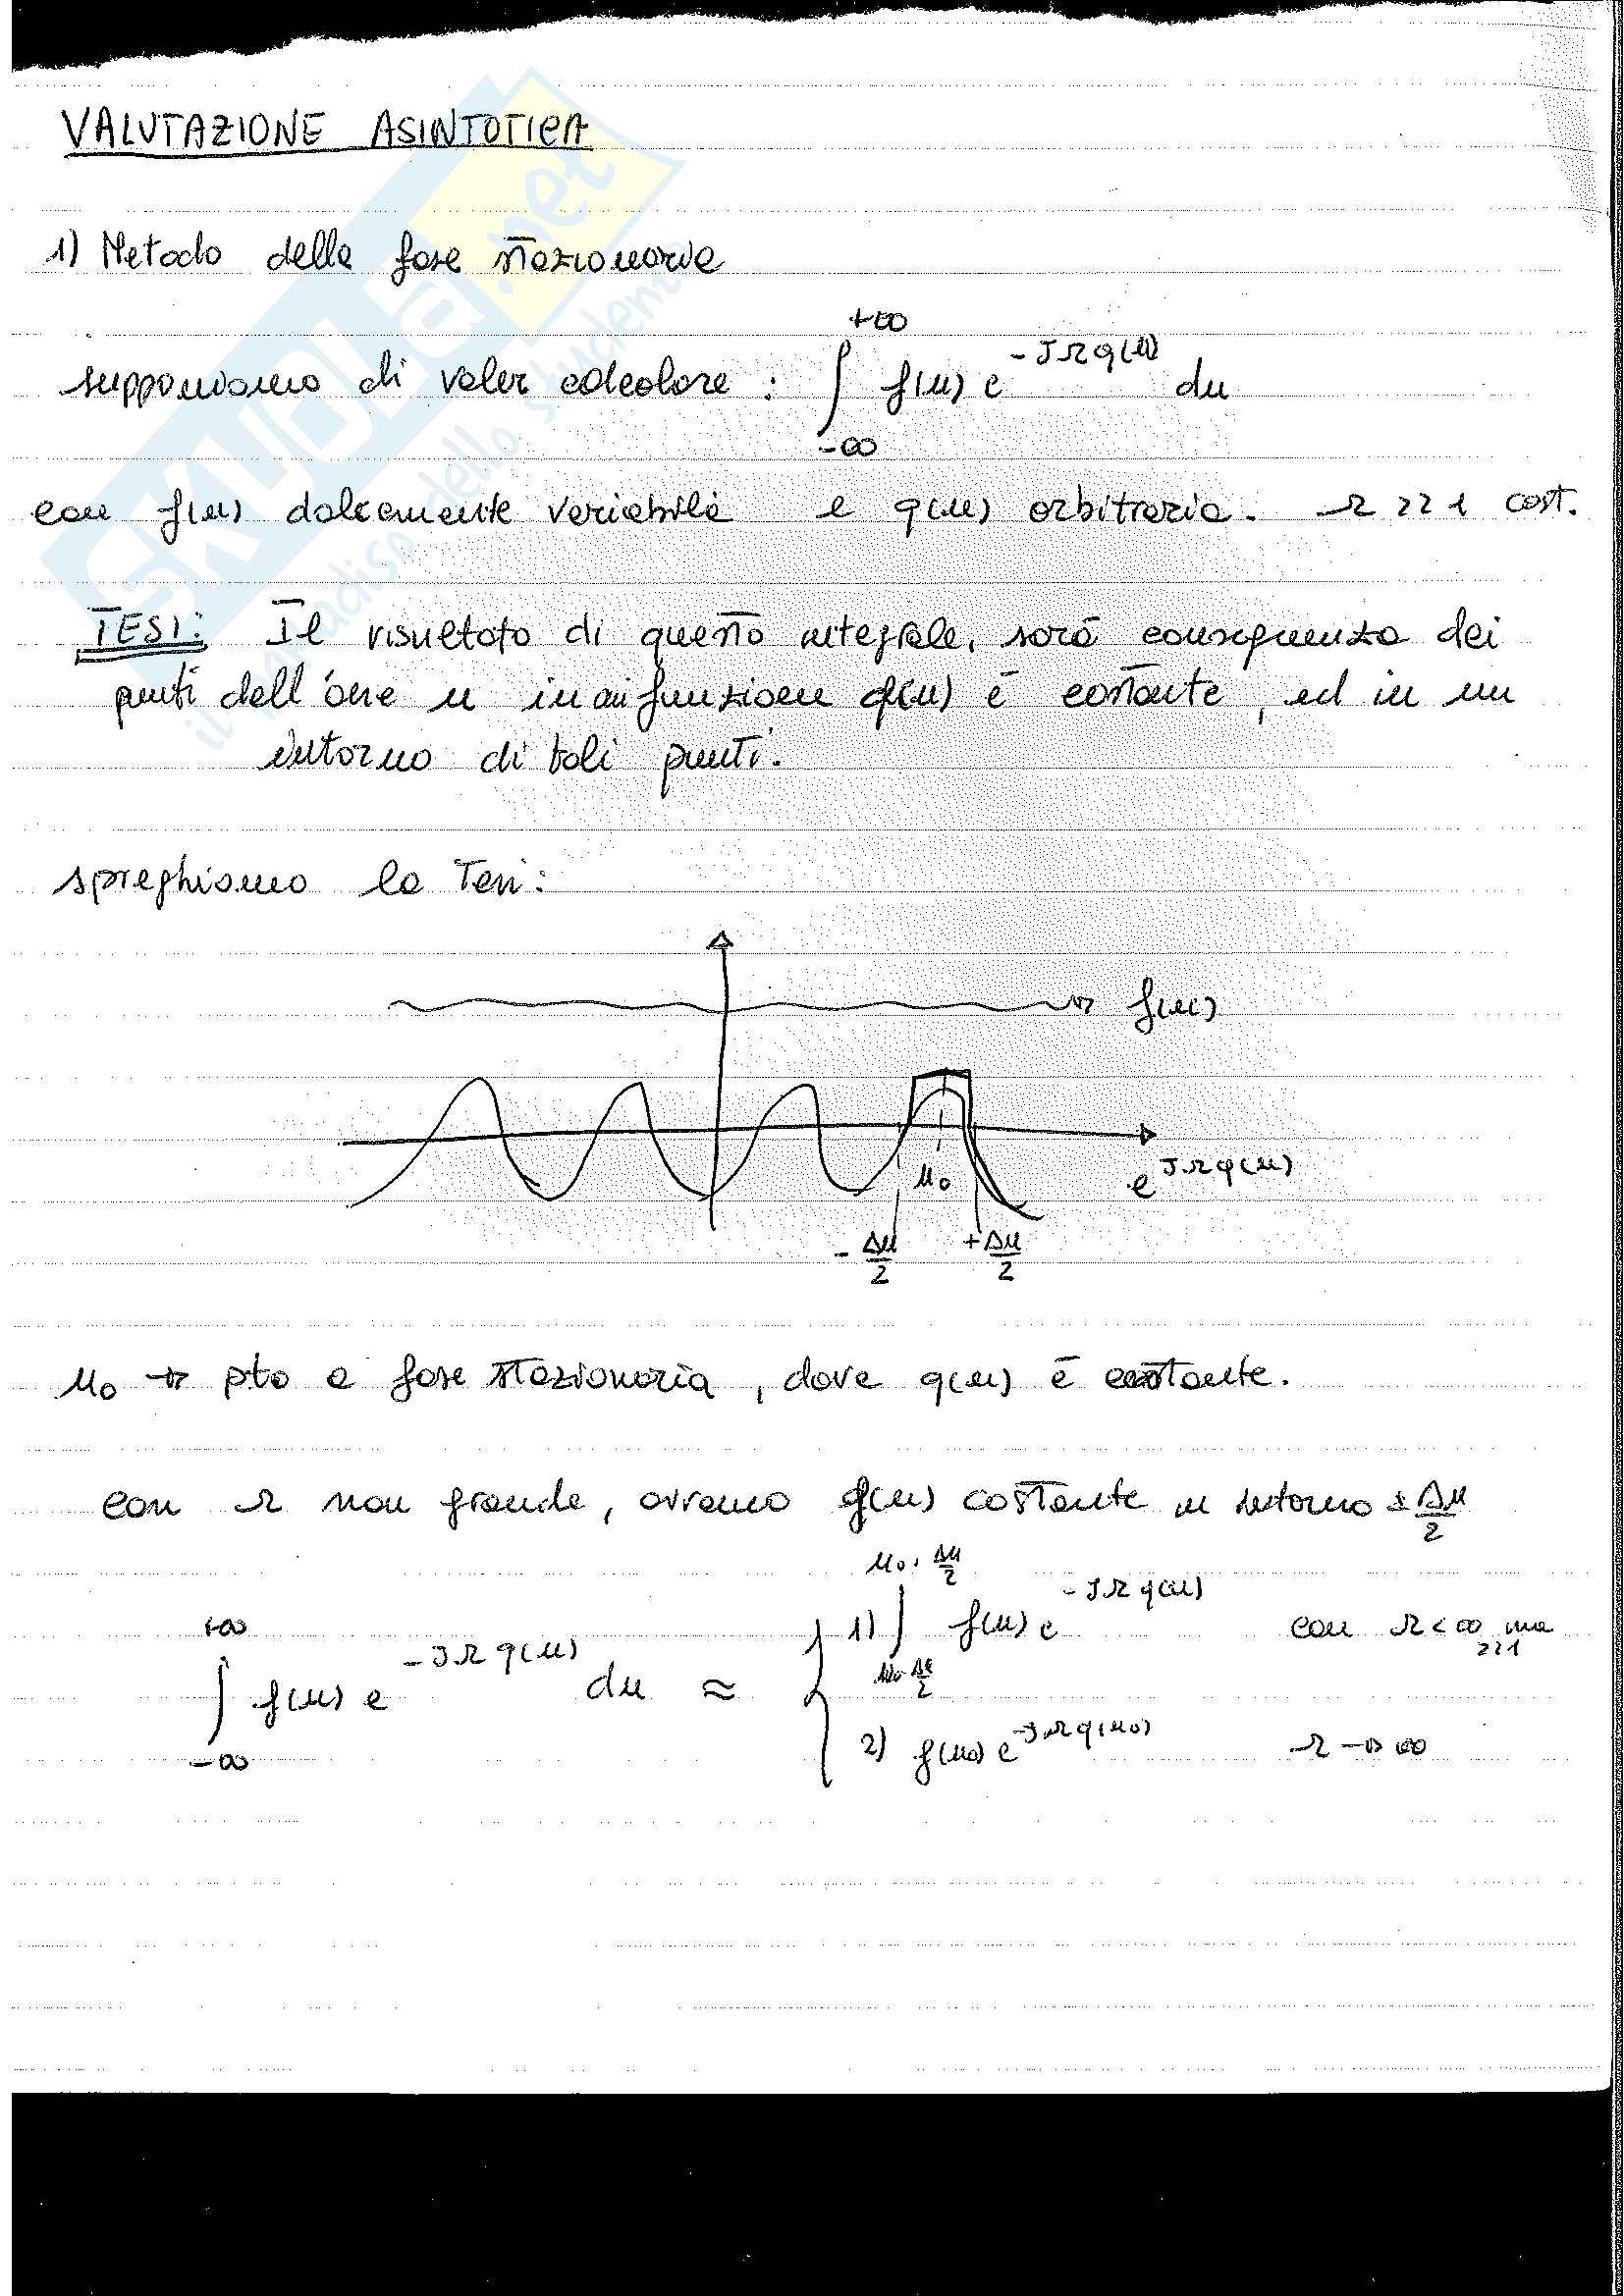 VALUTAZIONE ASINTOTICA
1) Metodo della fase stazionaria
supponiamo di voler calcolare : ∫_{-∞}^{+∞} f(u) e^{-JΩq(u)} du
con f(u) dolcemente variabile e q(u) arbitraria. Ω >> 1 cost.
TESI: Il risultato di questo integrale, sarà conseguenza dei
punti dell'asse u in cui funzione q(u) è costante, ed in un
intorno di tali punti.
spieghiamo la Tesi:
f(u)
u₀
e^{JΩq(u)}
- Δu/2 + Δu/2
u₀ → pto a fase stazionaria, dove q(u) è costante.
con Ω non grande, avremo q(u) costante in intorno ± Δu/2
∫_{-∞}^{+∞} f(u) e^{-JΩq(u)} du ≈ { 1) ∫_{u₀-Δu/2}^{u₀+Δu/2} f(u) e^{-JΩq(u)} con Ω < ∞ ma >>1
2) f(u₀) e^{-JΩq(u₀)} Ω → ∞
SKUOLA.net
il paradiso dello studente